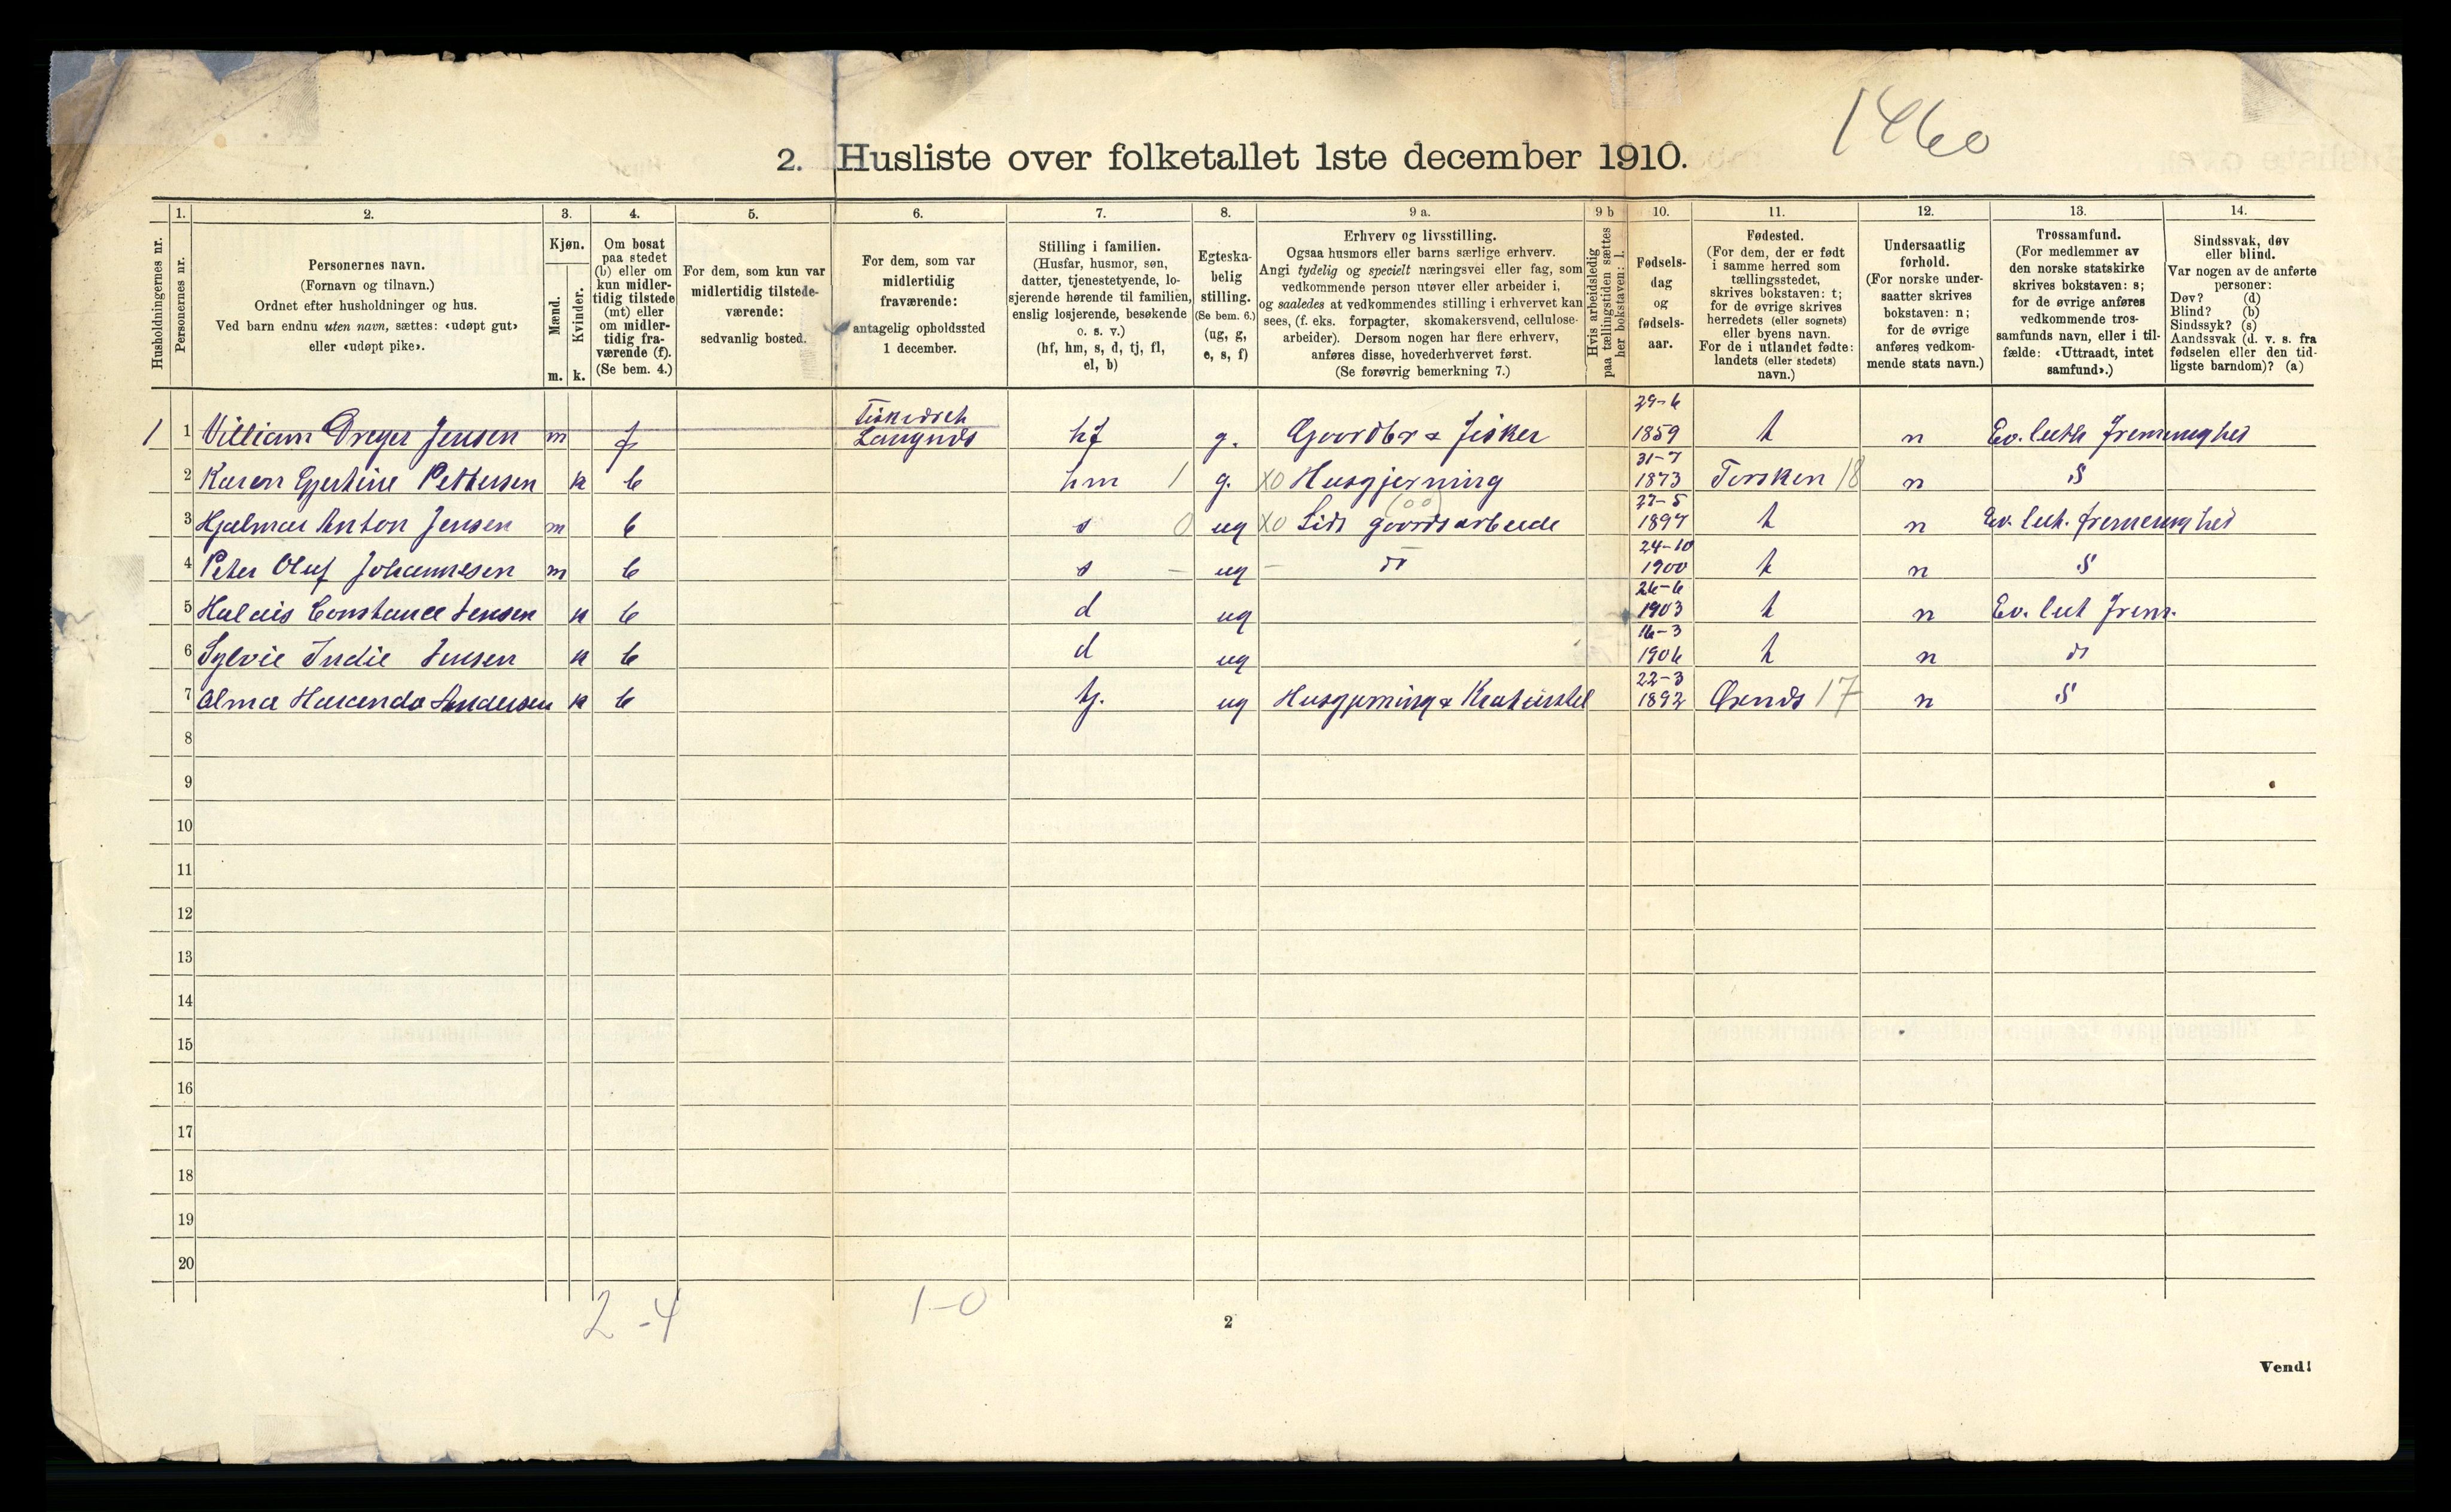 1460
2. Husliste over folketallet 1ste december 1910.
Husholdningernes nr.
1.
Personernes nr.
2.
Personernes navn.
(Fornavn og tilnavn.)
Ordnet efter husholdninger og hus.
Ved barn endnu uten navn, sættes: «udøpt gut»
eller «udøpt pike».
3.
Kjøn.
Mænd.
Kvinder.
m. k.
4.
Om bosat
paa stedet
(b) eller om
kun midler-
tidig tilstede
(mt) eller
om midler-
tidig fra-
værende (f).
(Se bem. 4.)
5.
For dem, som kun var
midlertidig tilstede-
værende:
sedvanlig bosted.
6.
For dem, som var
midlertidig
fraværende:
antagelig opholdssted
1 december.
7.
Stilling i familien.
(Husfar, husmor, søn,
datter, tjenestetyende, lo-
sjerende hørende til familien,
enslig losjerende, besøkende
o. s. v.)
(hf, hm, s, d, tj, fl,
el, b)
8.
Egteska-
belig
stilling.
(Se bem. 6.)
(ug, g,
e, s, f)
9 a.
Erhverv og livsstilling.
Ogsaa husmors eller barns særlige erhverv.
Angi tydelig og specielt næringsvei eller fag, som
vedkommende person utøver eller arbeider i,
og saaledes at vedkommendes stilling i erhvervet kan
sees, (f. eks. forpagter, skomakersvend, cellulose-
arbeider). Dersom nogen har flere erhverv,
anføres disse, hovederhvervet først.
(Se forøvrig bemerkning 7.)
9 b
Hvis arbeidsledig
paa tællingstiden sættes
her bokstaven: l.
10.
Fødsels-
dag
og
fødsels-
aar.
11.
Fødested.
(For dem, der er født
i samme herred som
tællingsstedet,
skrives bokstaven: t;
for de øvrige skrives
herredets (eller sognets)
eller byens navn.
For de i utlandet fødte:
landets (eller stedets)
navn.)
12.
Undersaatlig
forhold.
(For norske under-
saatter skrives
bokstaven: n;
for de øvrige
anføres vedkom-
mende stats navn.)
13.
Trossamfund.
(For medlemmer av
den norske statskirke
skrives bokstaven: s;
for de øvrige anføres
vedkommende tros-
samfunds navn, eller i til-
fælde: «Uttraadt, intet
samfund».)
14.
Sindssvak, døv
eller blind.
Var nogen av de anførte
personer:
Døv? (d)
Blind? (b)
Sindssyk? (s)
Aandssvak (d. v. s. fra
fødselen eller den tid-
ligste barndom)? (a)
29-6
1 1 William Dreyer Jensen m f hf g. Gaardbr & Fisker 1859 t n Ev. luth
31-7
2 Karen Gjertine Pettersen k b hm 1 g. XO Husgjerning 1873 Torsken 18 n S
(00)
27-5
3 Hjalmar Anton Jensen m b s 0 ug XO gaardsarbeide 1897 t n Ev. luth.
24-10
4 Peter Oluf Johannesen m b s – ug – do 1900 t n S
26-6
5 Constance Jensen k b d ug 1903 t n Ev. luth Frem.
16-3
6 Sylvie Indie Jensen k b d ug 1906 t n do
22-3
7 Alma Andersen k b tj. ug Husgjerning & Kreaturstel 1892 17 n S
8
9
10
11
12
13
14
15
16
17
18
19
20
2-4 1-0
2
Vend!